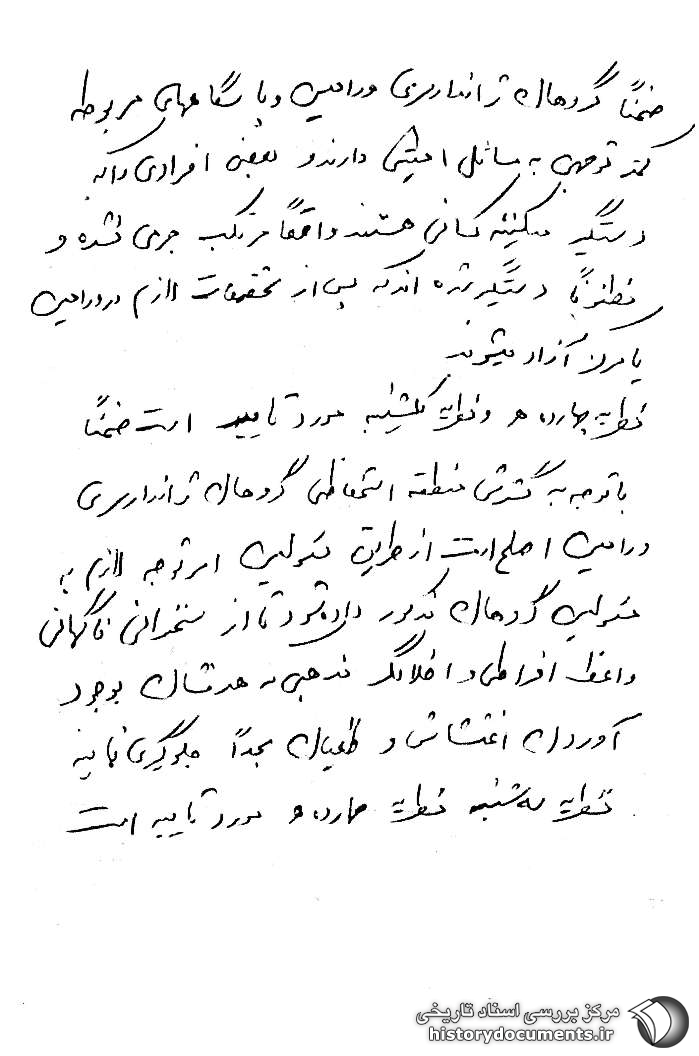 ضمناً گروهان ژاندارمری ورامین و پاسگاههای مربوطه
کمتر توجهی به مسائل امنیتی دارند و بعضی افرادی را که
دستگیر میکنند کسانی هستند واقعاً مرتکب جرمی نشده و
مظنوناً دستگیر شده اند که پس از تحقیقات لازم در ورامین
یا مرکز آزاد میشوند
نظریه چهارده ه و نظریه یکشنبه مورد تایید است ضمناً
با توجه به گسترش منطقه استحفاظی گروهان ژاندارمری
ورامین اصلح است از طریق مسئولین امر توجه لازم به
مسئولین گروهان مذکور داده شود تا از سخنرانی ناگهانی
واعظ افراطی و اخلالگر مذهبی که هدفشان بوجود
آوردن اغتشاش و طغیان جداً جلوگیری نمایند
نظریه سه شنبه نظریه چهارده ه مورد تایید است
مرکز بررسی اسناد تاریخی
historydocuments.ir